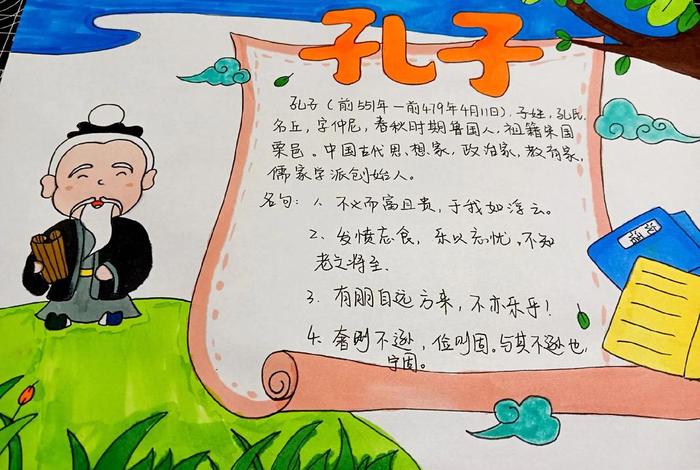 孔子
孔子(前551年一前479年4月11日),子姓,孔氏,
名丘,字仲尼,春秋时期鲁国人,祖籍宋国
栗邑。中国古代思想家,政治家,教育家,
儒家学派创始人。
名句:1、不义而富且贵,于我如浮云。
2、发愤忘食,乐以忘忧,不知
老之将至.
3.有朋自远方来,不亦乐乎!
4.奢则不逊,俭则固。与其不逊也,
宁固。
论语